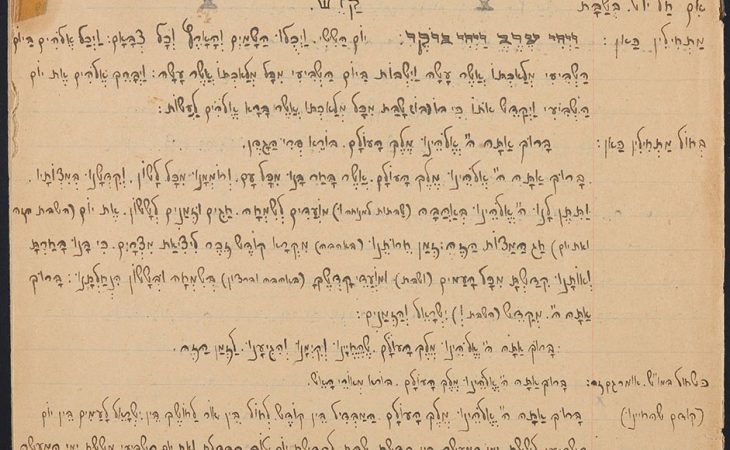 קדש.
אם חל יו"ט בשבת
מתחילין כאן: וַיְהִי עֶרֶב וַיְהִי בֹקֶר. יוֹם הַשִּׁשִּׁי. וַיְכֻלּוּ הַשָּׁמַיִם וְהָאָרֶץ וְכָל צְבָאָם: וַיְכַל אֱלֹהִים בַּיוֹם
הַשְּׁבִיעִי מְלַאכְתּוֹ אֲשֶׁר עָשָׂה וַיִּשְׁבּוֹת בַּיוֹם הַשְּׁבִיעִי מִכָּל מְלַאכְתּוֹ אֲשֶׁר עָשָׂה: וַיְבָרֶךְ אֱלֹהִים אֶת יוֹם
הַשְּׁבִיעִי וַיְקַדֵּשׁ אֹתוֹ כִּי בוֹ שָׁבַת מִכָּל מְלַאכְתּוֹ אֲשֶׁר בָּרָא אֱלֹהִים לַעֲשׂוֹת:
בחול מתחילין כאן: בָּרוּךְ אַתָּה ה' אֱלֹהֵינוּ מֶלֶךְ הָעוֹלָם. בּוֹרֵא פְּרִי הַגָּפֶן.
בָּרוּךְ אַתָּה ה' אֱלֹהֵינוּ מֶלֶךְ הָעוֹלָם. אֲשֶׁר בָּחַר בָּנוּ מִכָּל עָם. וְרוֹמְמָנוּ מִכָּל לָשׁוֹן. וְקִדְּשָׁנוּ בְּמִצְוֹתָיו.
וַתִּתֶּן לָנוּ ה' אֱלֹהֵינוּ בְּאַהֲבָה (שבתות למנוחה ו) מוֹעֲדִים לְשִׂמְחָה. חַגִּים וּזְמַנִּים לְשָׂשׂוֹן. אֶת יוֹם (השבת הזה
ואת יום) חַג הַמַּצּוֹת הַזֶּה: זְמַן חֵרוּתֵנוּ (באהבה) מִקְרָא קוֹדֶשׁ זֵכֶר לִיצִיאַת מִצְרָיִם. כִּי בָנוּ בָחַרְתָּ
וְאוֹתָנוּ קִדַּשְׁתָּ מִכָּל הָעַמִּים (ושבת) וּמוֹעֲדֵי קָדְשֶׁךָ (באהבה וברצון) בְּשִׂמְחָה וּבְשָׂשׂוֹן הִנְחַלְתָּנוּ: בָּרוּךְ
אַתָּה ה'. מְקַדֵּשׁ (השבת ו) יִשְׂרָאֵל וְהַזְּמַנִּים:
בָּרוּךְ אַתָּה ה' אֱלֹהֵינוּ מֶלֶךְ הָעוֹלָם. שֶׁהֶחֱיָנוּ וְקִיְּמָנוּ וְהִגִּיעָנוּ. לַזְּמַן הַזֶּה.
כשחל במו"ש. אומרים גם זה: בָּרוּךְ אַתָּה ה' אֱלֹהֵינוּ מֶלֶךְ הָעוֹלָם. בּוֹרֵא מְאוֹרֵי הָאֵשׁ.
(קודם שהחיינו) בָּרוּךְ אַתָּה ה' אֱלֹהֵינוּ מֶלֶךְ הָעוֹלָם. הַמַּבְדִּיל בֵּין קוֹדֶשׁ לְחוֹל בֵּין אוֹר לְחוֹשֶׁךְ בֵּין יִשְׂרָאֵל לָעַמִּים בֵּין יוֹם